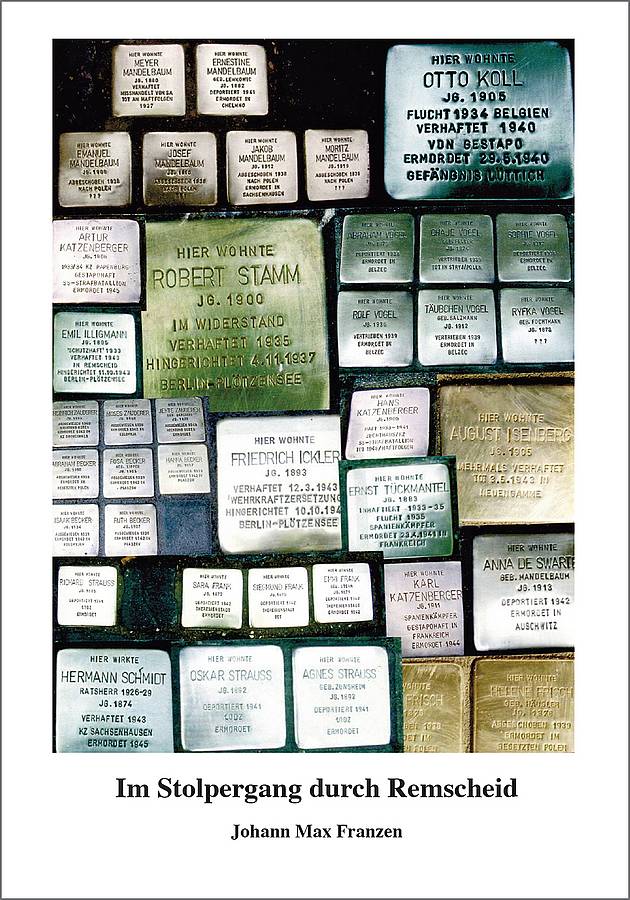 HIER WOHNTE
MEYER
MANDELBAUM
JG. 1880
VERHAFTET
MISSHANDELT VON SA
TOT AN HAFTFOLGEN
1937
HIER WOHNTE
ERNESTINE
MANDELBAUM
GEB. LEWKOWIC
JG. 1882
DEPORTIERT 1941
ERMORDET IN
CHELMNO
HIER WOHNTE
OTTO KOLL
JG. 1905
FLUCHT 1934 BELGIEN
VERHAFTET 1940
VON GESTAPO
ERMORDET 29.5.1940
GEFÄNGNIS LÜTTICH
HIER WOHNTE
EMANUEL
MANDELBAUM
ABGESCHOBEN 1938
NACH POLEN
???
HIER WOHNTE
JOSEF
MANDELBAUM
ABGESCHOBEN 1938
NACH POLEN
???
HIER WOHNTE
JAKOB
MANDELBAUM
JG. 1912
ABGESCHOBEN 1938
NACH POLEN
ERMORDET IN
SACHSENHAUSEN
HIER WOHNTE
MORITZ
MANDELBAUM
ABGESCHOBEN 1938
NACH POLEN
???
HIER WOHNTE
ARTUR
KATZENBERGER
JG. 1906
1933/34 KZ PAPENBURG
GESTAPOHAFT
SS-STRAFBATAILLON
ERMORDET 1945
HIER WOHNTE
ROBERT STAMM
JG. 1900
IM WIDERSTAND
VERHAFTET 1935
HINGERICHTET 4.11.1937
BERLIN-PLÖTZENSEE
HIER WOHNTE
ABRAHAM VOGEL
ERMORDET IN
BELZEC
HIER WOHNTE
CHAJE VOGEL
HIER WOHNTE
SOPHIE VOGEL
ERMORDET IN
BELZEC
HIER WOHNTE
EMIL ILLIGMANN
JG. 1895
"SCHUTZHAFT" 1933
VERHAFTET 1943
IN REMSCHEID
BERLIN-PLÖTZENSEE
HIER WOHNTE
ROLF VOGEL
VERTRIEBEN 1939
ERMORDET IN
BELZEC
HIER WOHNTE
TÄUBCHEN VOGEL
GEB. SALZMANN
JG. 1912
VERTRIEBEN 1939
ERMORDET IN
BELZEC
HIER WOHNTE
RYFKA VOGEL
???
MOSES ZAUDERER
HIER WOHNTE
HANS
KATZENBERGER
SS-STRAFBATAILLON
HIER WOHNTE
AUGUST ISENBERG
JG. 1905
MEHRMALS VERHAFTET
TOT 3.5.1945 IN
NEUENGAMME
ABRAHAM BECKER
ROSA BECKER
HANNA BECKER
HIER WOHNTE
FRIEDRICH ICKLER
JG. 1893
VERHAFTET 12.3.1943
'WEHRKRAFTZERSETZUNG
HINGERICHTET 10.10.194
BERLIN-PLÖTZENSEE
HIER WOHNTE
ERNST TÜCKMANTEL
JG. 1883
INHAFTIERT 1933-35
FLUCHT 1935
SPANIENKÄMPFER
ERMORDET 23.4.1941 IN
FRANKREICH
ISAAK BECKER
RUTH BECKER
HIER WOHNTE
RICHARD STRAUSS
HIER WOHNTE
SARA FRANK
DEPORTIERT 1942
THERESIENSTADT
ERMORDET
HIER WOHNTE
SIEGMUND FRANK
DEPORTIERT 1942
THERESIENSTADT
ERMORDET
HIER WOHNTE
EMMI FRANK
DEPORTIERT 1942
THERESIENSTADT
ERMORDET
HIER WOHNTE
KARL
KATZENBERGER
JG. 1911
SPANIENKÄMPFER
GESTAPOHAFT IN
FRANKREICH
ERMORDET 1944
HIER WOHNTE
ANNA DE SWART
GEB. MANDELBAUM
JG. 1913
DEPORTIERT 1942
ERMORDET IN
AUSCHWITZ
HIER WIRKTE
HERMANN SCHMIDT
RATSHERR 1926-29
JG. 1874
VERHAFTET 1943
KZ SACHSENHAUSEN
ERMORDET 1945
HIER WOHNTE
OSKAR STRAUSS
JG. 1892
DEPORTIERT 1941
LODZ
ERMORDET
HIER WOHNTE
AGNES STRAUSS
GEB. ZUNSHEIM
JG. 1892
DEPORTIERT 1941
LODZ
ERMORDET
FRISCH
HIER WOHNTE
HELENE FRISCH
ABGESCHOBEN 1939
ERMORDET IM
BESETZTEN POLEN
Im Stolpergang durch Remscheid
Johann Max Franzen